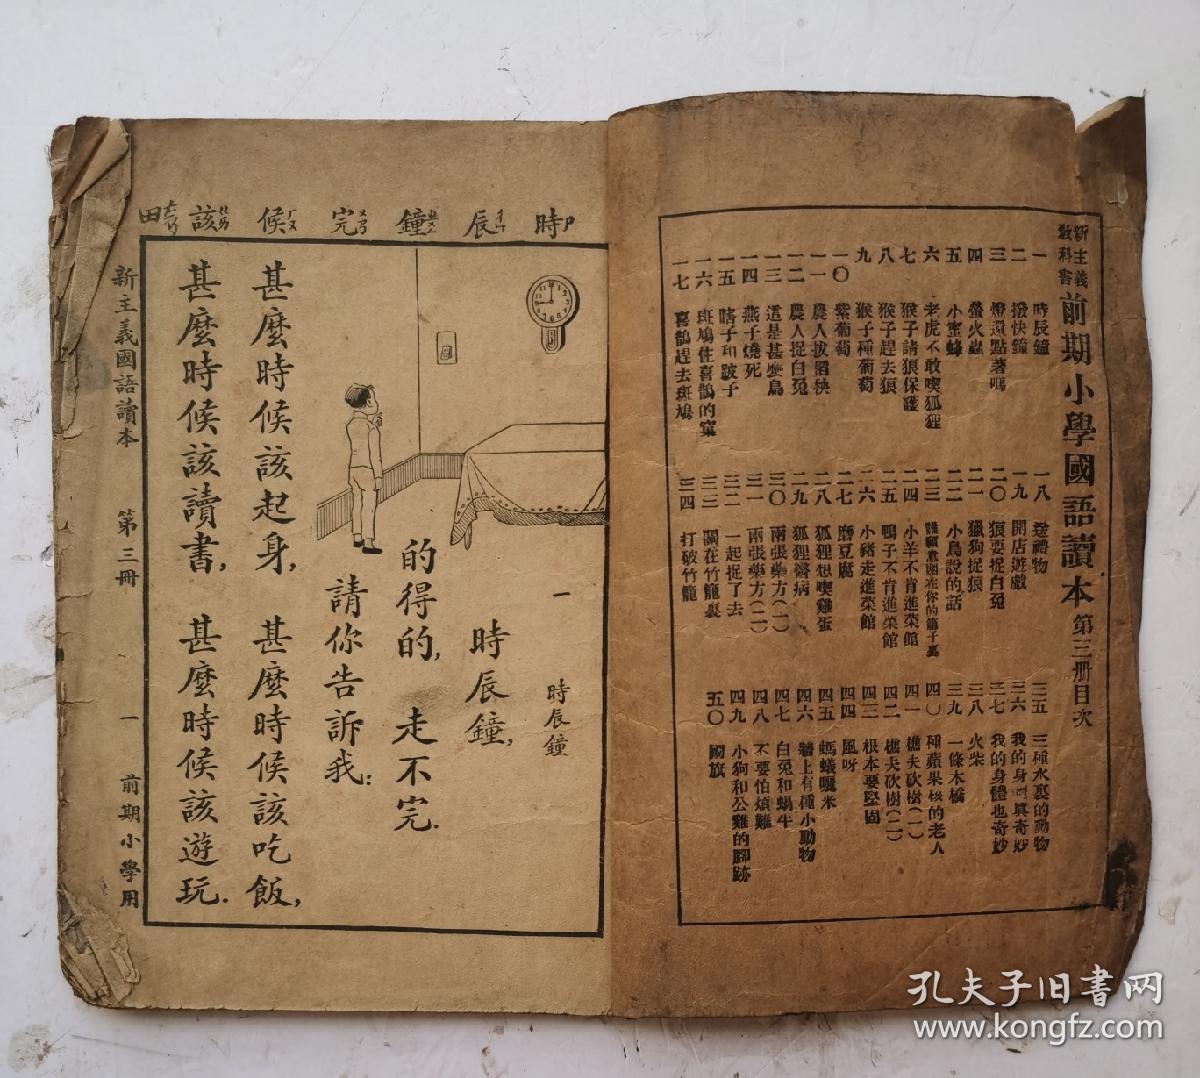 新主義
教科書
前期小學國語讀本 第三册目次
一 時辰鐘
二 撥快鐘
三 燈還點著嗎
四 螢火蟲
五 小蜜蜂
六 老虎不敢喫狐狸
七 猴子請狼保護
八 猴子趕去狼
九 猴子種葡萄
一〇 紫葡萄
一一 農人拔稻秧
一二 農人捉白兔
一三 這是甚麼鳥
一四 燕子燒死
一五 瞎子和跛子
一六 斑鳩住喜鵲的窠
一七 喜鵲趕去斑鳩
一八 送禮物
一九 開店遊戲
二〇 狼要捉白兔
二一 獵狗捉狼
二二 小鳥說的話
二三
二四 小羊不肯進菜館
二五 鴨子不肯進菜館
二六 小豬走進菜館
二七 磨豆腐
二八 狐狸想喫雞蛋
二九 狐狸醫病
三〇 兩張藥方(一)
三一 兩張藥方(二)
三二 一起捉了去
三三 關在竹籠裏
三四 打破竹籠
三五 三種水裏的動物
三六 我的身體真奇妙
三七 我的身體也奇妙
三八 火柴
三九 一條木橋
四〇 種蘋果核的老人
四一 樵夫砍樹(一)
四二 樵夫砍樹(二)
四三 根本要堅固
四四 風呀
四五 螞蟻囇米
四六 牆上有種小動物
四七 白兔和蝸牛
四八 不要怕煩難
四九 小狗和公雞的腳跡
五〇 國旗
時 辰 鐘 完 候 該 田
一 時辰鐘
時辰鐘,
的得的, 走不完.
請你告訴我:
甚麼時候該起身, 甚麼時候該吃飯,
甚麼時候該讀書, 甚麼時候該遊玩.
新主義國語讀本 第三冊 一 前期小學用
孔夫子旧书网
www.kongfz.com